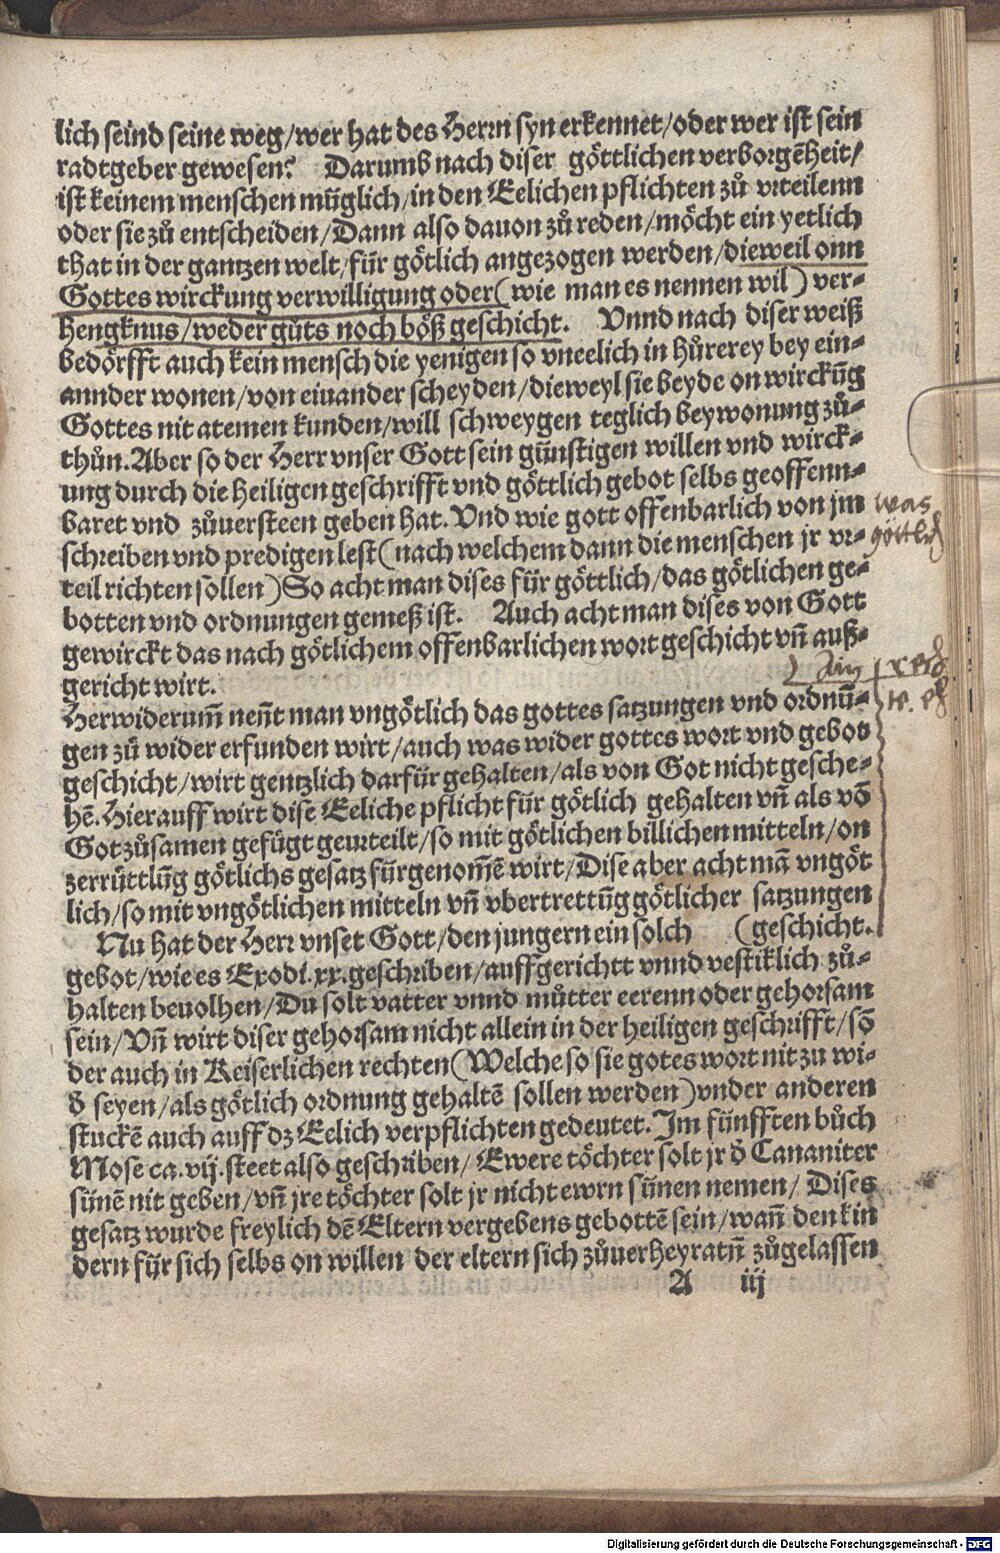 lich seind seine weg/wer hat des Herrn syn erkennet/oder wer ist sein
radtgeber gewesen? Darumb nach diser göttlichen verborgēheit/
ist keinem menschen müglich/in den Eelichen pflichten zů vrteilenn
oder sie zů entscheiden/Dann also dauon zů reden/möcht ein yetlich
that in der gantzen welt/für götlich angezogen werden/dieweil onn
Gottes wirckung verwilligung oder(wie man es nennen wil) ver-
hengknus/weder gůts noch böß geschicht. Vnnd nach diser weiß
bedörfft auch kein mensch die yenigen so vneelich in Hůrerey bey ein-
annder wonen/von einander scheyden/dieweyl sie beyde on wirckūg
Gottes nit atemen kunden/will schweygen teglich beywonung zů-
thůn. Aber so der Herr vnser Gott sein günstigen willen vnd wirck-
ung durch die heiligen geschrifft vnd göttlich gebot selbs geoffenn-
baret vnd zůuersteen geben hat. Vnd wie gott offenbarlich von jm
schreiben vnd predigen lest(nach welchem dann die menschen jr vr-
teil richten sollen)So acht man dises für göttlich/das götlichen ge-
botten vnd ordnungen gemeß ist. Auch acht man dises von Gott
gewirckt das nach götlichem offenbarlichen wort geschicht vñ auß-
gericht wirt.
was
göttlich
Herwiderum̃ neñt man vngötlich das gottes satzungen vnd ordnū-
gen zů wider erfunden wirt/auch was wider gottes wort vnd gebot
geschicht/wirt gentzlich darfür gehalten/als von Got nicht gesche-
hē. Hierauff wirt dise Eeliche pflicht für götlich gehalten vñ als vō
Got zůsamen gefügt geurteilt/so mit götlichen billichen mitteln/on
zerrüttlūg götlichs gesatz fürgenom̃ē wirt/Dise aber acht mā vngöt
lich/so mit vngötlichen mitteln vñ vbertrettūg götlicher satzungen
Nu hat der Herr vnset Gott/den jungern ein solch (geschicht.
gebot/wie es Exodi.xx.geschriben/auffgerichtt vnnd vestiklich zů-
halten beuolhen/Du solt vatter vnnd můtter eerenn oder gehorsam
sein/Vñ wirt diser gehorsam nicht allein in der heiligen geschrifft/sō
der auch in Keiserlichen rechten(Welche so sie gotes wort nit zu wi-
d̄ seyen/als götlich ordnung gehaltē sollen werden)vnder anderen
stuckē auch auff dz Eelich verpflichten gedeutet. Im fünfften bůch
Mose ca.vij.steet also geschriben/Ewere töchter solt jr d̄ Cananiter
sünē nit geben/vñ jre töchter solt jr nicht ewrn sünen nemen/Dises
gesatz wurde freylich dē Eltern vergebens gebottē sein/wañ den kin
dern für sich selbs on willen der eltern sich zůuerheyratñ zůgelassen
A iij
Digitalisierung gefördert durch die Deutsche Forschungsgemeinschaft - DFG